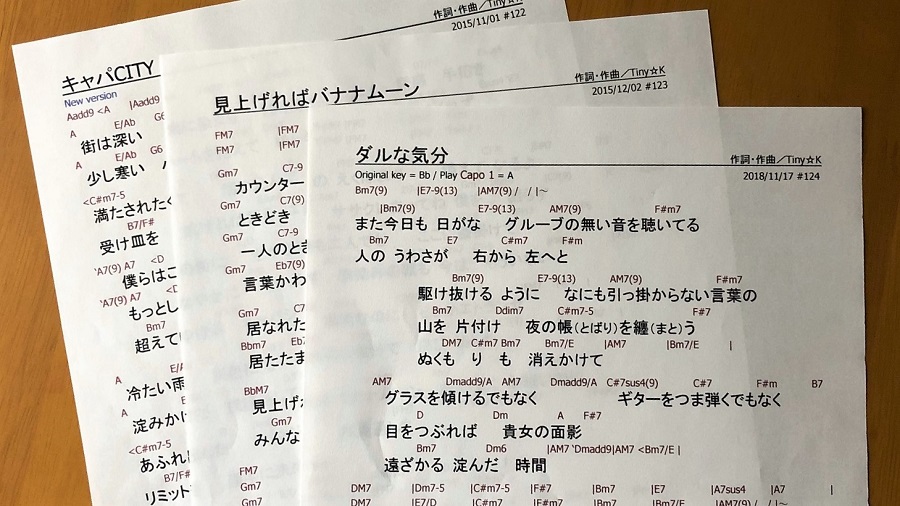 作詞・作曲／Tiny☆K
2015/11/01 #122
キャパCITY
New version
Aadd9 <A |Aadd9
A E/Ab G6
街は深い
A E/Ab G6
少し寒い
<C#m7-5
満たされたく
B7/F#
受け皿を
'A7(9) A7 <D
僕らはこ
'A7(9) A7 <D
もっとし
Bm7
超えて
A
冷たい雨
A
淀みか
<C#m7-5
あふれ
B7/F#
リミット
作詞・作曲／Tiny☆K
2015/12/02 #123
見上げればバナナムーン
FM7 |FM7
FM7 |FM7
Gm7 C7-9
カウンター
Gm7 C7(9)
ときどき
Gm7 C7-9
一人のとき
Gm7 Eb7(9)
言葉かわ
Gm7
居なれた
Bbm7
居たたま
BbM7
見上げ
Gm7
みんな
FM7
Gm7
Gm7
ダルな気分
作詞・作曲／Tiny☆K
Original key = Bb / Play Capo 1 = A
2018/11/17 #124
Bm7(9) |E7-9(13) |AM7(9) / / |～
|Bm7(9) E7-9(13) AM7(9) F#m7
また今日も 日がな グルーブの無い音を聴いてる
Bm7 E7 C#m7 F#m
人の うわさが 右から 左へと
Bm7(9) E7-9(13) AM7(9) F#m7
駆け抜ける ように なにも引っ掛からない言葉の
Bm7 Ddim7 C#m7-5 F#7
山を 片付け 夜の帳(とばり)を纏(まと)う
DM7 C#m7 Bm7 Bm7/E |AM7 |Bm7/E |
ぬくも り も 消えかけて
AM7 Dmadd9/A AM7 Dmadd9/A C#7sus4(9) C#7 F#m B7
グラスを傾けるでもなく ギターをつま弾くでもなく
D Dm A F#7
目をつぶれば 貴女の面影
Bm7 Dm6 |AM7 'Dmadd9|AM7 <Bm7/E |
遠ざかる 淀んだ 時間
DM7 |Dm7-5 |C#m7-5 |F#7 |Bm7 |E7 |A7sus4 |A7 |
DM7 |E7/D |C#m7 |F#m |Bm7 |Bm7/E |AM7(9) / / |～